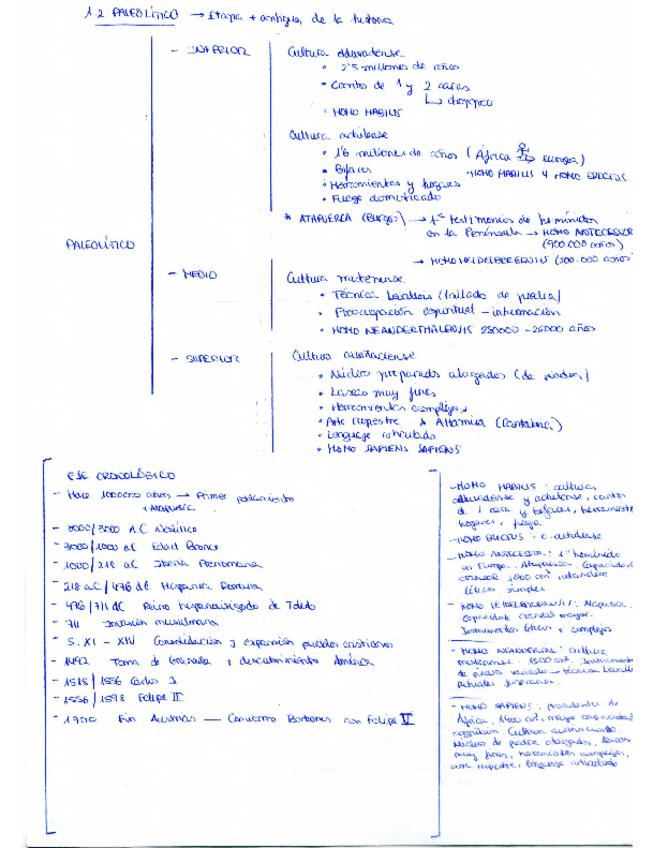 1.2 PALEOLÍTICO → Etapa + antigua de la historia
PALEOLÍTICO
- INFERIOR
Cultura olduvaiense
• 2'5 millones de años
• Cantos de 1 y 2 caras
↳ choppers
• HOMO HABILIS
Cultura achelense
• 1'6 millones de años (África → Europa)
• Bifaces
• HOMO HABILIS Y HOMO ERECTUS
• Herramientas y hogares
• Fuego domesticado
* ATAPUERCA (Burgos) → 1os testimonios de homínidos
en la Península → HOMO ANTECESSOR
(900.000 años)
→ HOMO HEIDELBERGENSIS (300.000 años)
- MEDIO
Cultura musteriense
• Técnica Levallois (tallado de piedra)
• Preocupación espiritual - inhumación
• HOMO NEANDERTHALENSIS 250000 - 25000 años
- SUPERIOR
Cultura auriñaciense
• Núcleos preparados alargados (de piedra)
• Lascas muy finas
• Herramientas complejas
• Arte rupestre → Altamira (Cantabria)
• Lenguaje articulado
• HOMO SAPIENS SAPIENS
EJE CRONOLÓGICO
- Hace 1000000 años → Primer poblamiento
Atapuerca
- 3000 A.C Neolítico
- 3000/1000 a.C Edad Bronce
- 1000/218 a.C Iberia Prerromana
- 218 a.C/476 d.C Hispania Romana
- 476/711 d.C Reino hispanovisigodo de Toledo
- 711 Invasión musulmana
- S. XI - XIV Consolidación y expansión pueblos cristianos
- 1492 Toma de Granada y descubrimiento América
- 1518/1556 Carlos I
- 1556/1598 Felipe II
- 1700 Fin Austrias — Comienzo Borbones con Felipe V
- HOMO HABILIS: cultura
olduvaiense y achelense, cantos
de 1 cara y bifaces, herramientas
hogares, fuego
- HOMO ERECTUS: c. achelense
- HOMO ANTECESSOR: 1er homínido
en Europa. Atapuerca. Capacidad
craneal 1000 cm3
líticos simples
- HOMO HEIDELBERGENSIS: Atapuerca.
Capacidad craneal mayor.
Instrumentos líticos + complejos
- HOMO NEANDERTAL: cultura
musteriense. 1500 cm3. Instrumentos
de piedra variados → técnica Levallois
rituales funerarios
- HOMO SAPIENS: procedentes de
África. 1400 cm3, mayor capacidad
cognitiva. Cultura auriñaciense
Núcleos de piedra alargados, lascas
muy finas, herramientas complejas,
arte rupestre, lenguaje articulado